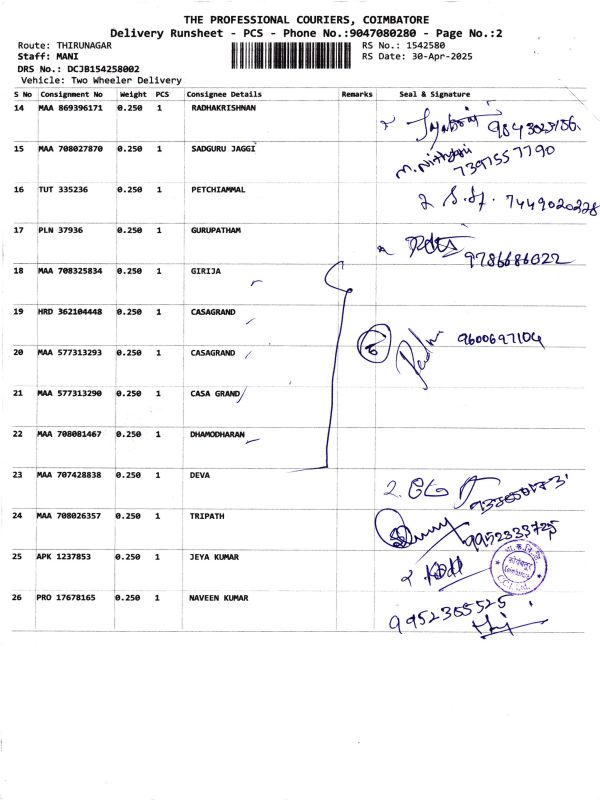 THE PROFESSIONAL COURIERS, COIMBATORE
Delivery Runsheet - PCS - Phone No.:9047080280 - Page No.:2
Route: THIRUNAGAR RS No.: 1542580
Staff: MANI RS Date: 30-Apr-2025
DRS No.: DCJB154258002
Vehicle: Two Wheeler Delivery
S No Consignment No Weight PCS Consignee Details Remarks Seal & Signature
14 MAA 869396171 0.250 1 RADHAKRISHNAN
15 MAA 708027870 0.250 1 SADGURU JAGGI 7397557790
16 TUT 335236 0.250 1 PETCHIAMMAL 7449020228
17 PLN 37936 0.250 1 GURUPATHAM 9786686022
18 MAA 708325834 0.250 1 GIRIJA
19 HRD 362104448 0.250 1 CASAGRAND
20 MAA 577313293 0.250 1 CASAGRAND 9600697104
21 MAA 577313290 0.250 1 CASA GRAND
22 MAA 708081467 0.250 1 DHAMODHARAN
23 MAA 707428838 0.250 1 DEVA
24 MAA 708026357 0.250 1 TRIPATH 9952333725
25 APK 1237853 0.250 1 JEYA KUMAR
26 PRO 17678165 0.250 1 NAVEEN KUMAR 9952365525